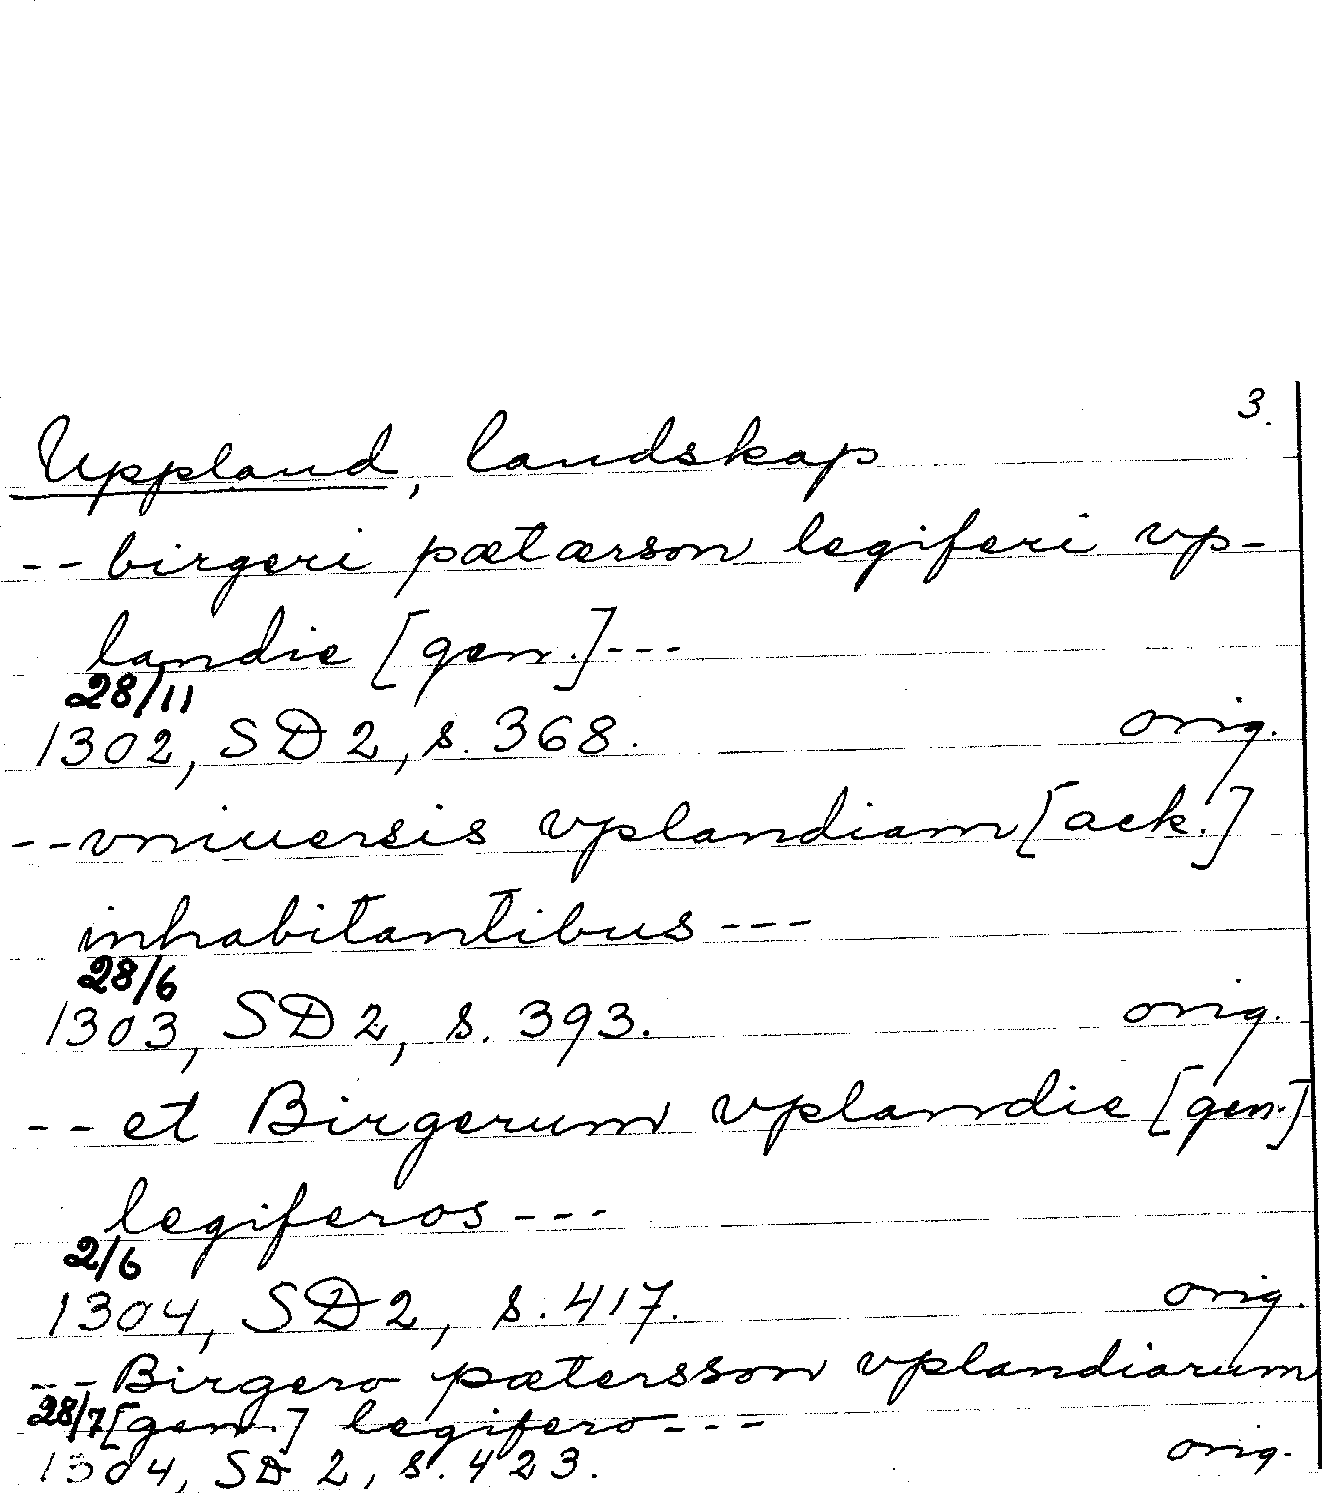 3.
Uppland, landskap
-- birgeri pætærson legiferi vp-
landie [gen.]---
28/11
1302, SD 2, s. 368. orig.
-- vniuersis vplandiam [ack.]
inhabitantibus ---
28/6
1303, SD 2, s. 393. orig.
-- et Birgerum vplandie [gen.]
legiferos ---
2/6
1304, SD 2, s. 417. orig.
-- Birgero pætersson vplandiarum
28/7 [gen.] legifero ---
1304, SD 2, s. 423. orig.